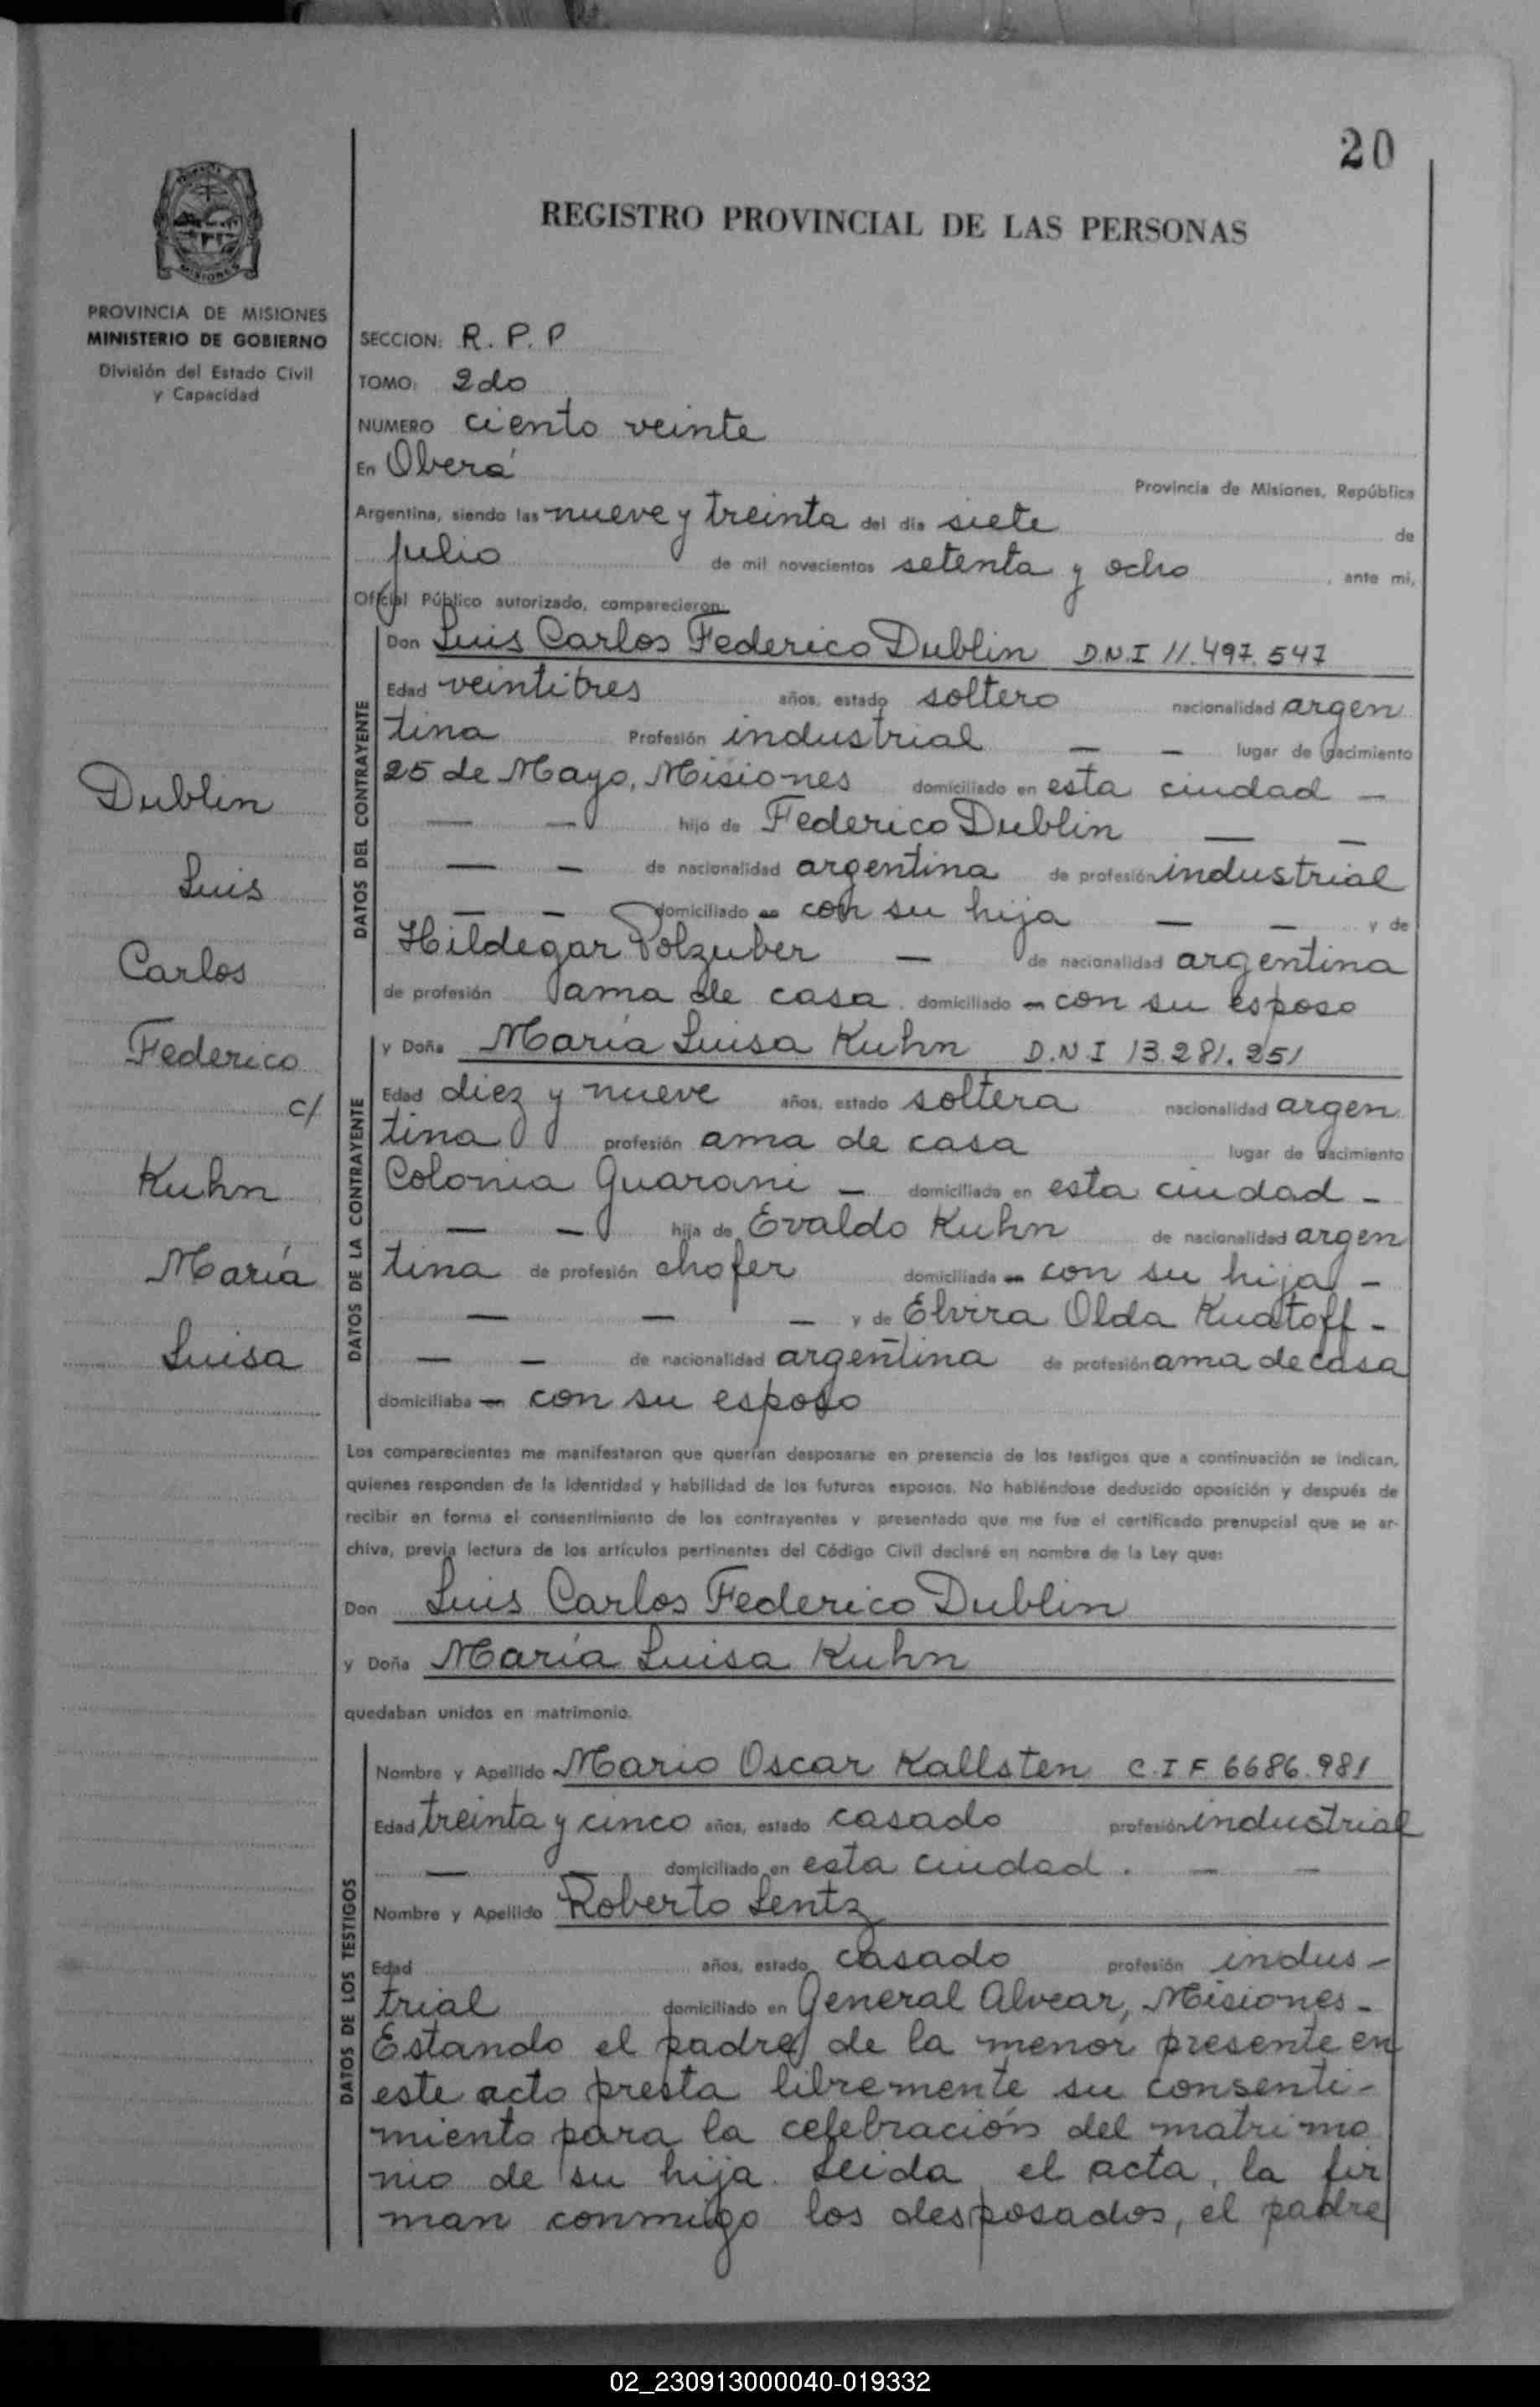 20
REGISTRO PROVINCIAL DE LAS PERSONAS
MISIONES
PROVINCIA DE MISIONES
MINISTERIO DE GOBIERNO
División del Estado Civil
y Capacidad
SECCION: R. P. P
TOMO: 2do
NUMERO ciento veinte
En Oberá
Provincia de Misiones, República
Argentina, siendo las nueve y treinta del día siete de
julio de mil novecientos setenta y ocho, ante mi,
Oficial Público autorizado, comparecieron:
DATOS DEL CONTRAYENTE
Don Luis Carlos Federico Dublin D.N.I 11.497.547
Edad veintitres años, estado soltero nacionalidad argen
tina Profesión industrial — — lugar de nacimiento
25 de Mayo, Misiones domiciliado en esta ciudad —
— — hijo de Federico Dublin — —
— — de nacionalidad argentina de profesión industrial
— — domiciliado en con su hija — — y de
Hildegar Polzuber — de nacionalidad argentina
de profesión ama de casa. domiciliado en con su esposo
DATOS DE LA CONTRAYENTE
y Doña María Luisa Kuhn D.N.I 13.281.251
Edad diez y nueve años, estado soltera nacionalidad argen
tina profesión ama de casa lugar de nacimiento
Colonia Guarani — domiciliada en esta ciudad -
— — hija de Evaldo Kuhn de nacionalidad argen
tina de profesión chofer domiciliada en con su hija -
— — — y de Elvira Olda Kuatoff -
— — de nacionalidad argentina de profesión ama de casa
domiciliaba en con su esposo
Dublin
Luis
Carlos
Federico
c/
Kuhn
María
Luisa
Los comparecientes me manifestaron que querían desposarse en presencia de los testigos que a continuación se indican,
quienes responden de la identidad y habilidad de los futuros esposos. No habiéndose deducido oposición y después de
recibir en forma el consentimiento de los contrayentes y presentado que me fue el certificado prenupcial que se ar-
chiva, previa lectura de los artículos pertinentes del Código Civil declaré en nombre de la Ley que:
Don Luis Carlos Federico Dublin
y Doña María Luisa Kuhn
quedaban unidos en matrimonio.
DATOS DE LOS TESTIGOS
Nombre y Apellido Mario Oscar Kallsten C.I.F 6686.981
Edad treinta y cinco años, estado casado profesión industrial
— — domiciliado en esta ciudad. — —
Nombre y Apellido Roberto Lentz
Edad años, estado casado profesión indus-
trial domiciliado en General Alvear, Misiones-
Estando el padre de la menor presente en
este acto presta libremente su consenti-
miento para la celebración del matrimo
nio de su hija. Leida el acta, la fir
man conmigo los desposados, el padre
02_230913000040-019332